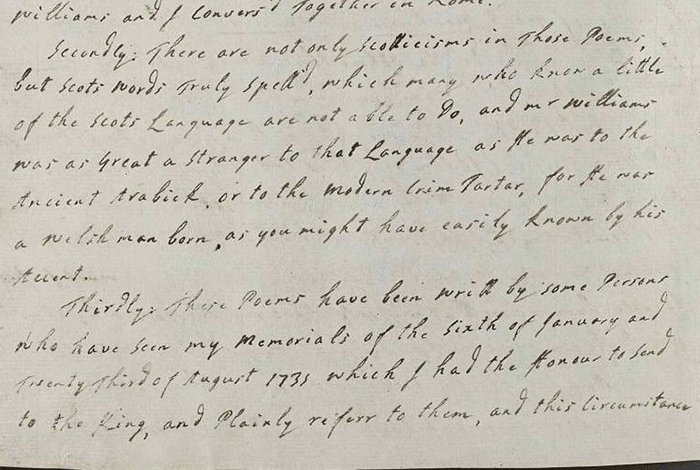 Williams and I Convers'd Together in Rome.
Secondly: There are not only Scotticisms in Those Poems,
but Scots words Truly Spell'd, which many who know a little
of the Scots Language are not able to Do, and mr Williams
was as Great a Stranger to that Language as He was to the
Ancient Arabick, or to the Modern Crim Tartar, for He was
a Welsh man born, as you might have easily known by his
Accent.
Thirdly: These Poems have been writt by some Persons
who have seen my Memorials of the Sixth of January and
Twenty Third of August 1731 which I had the Honour to Send
to the King, and Plainly referr to them, and this Circumstance